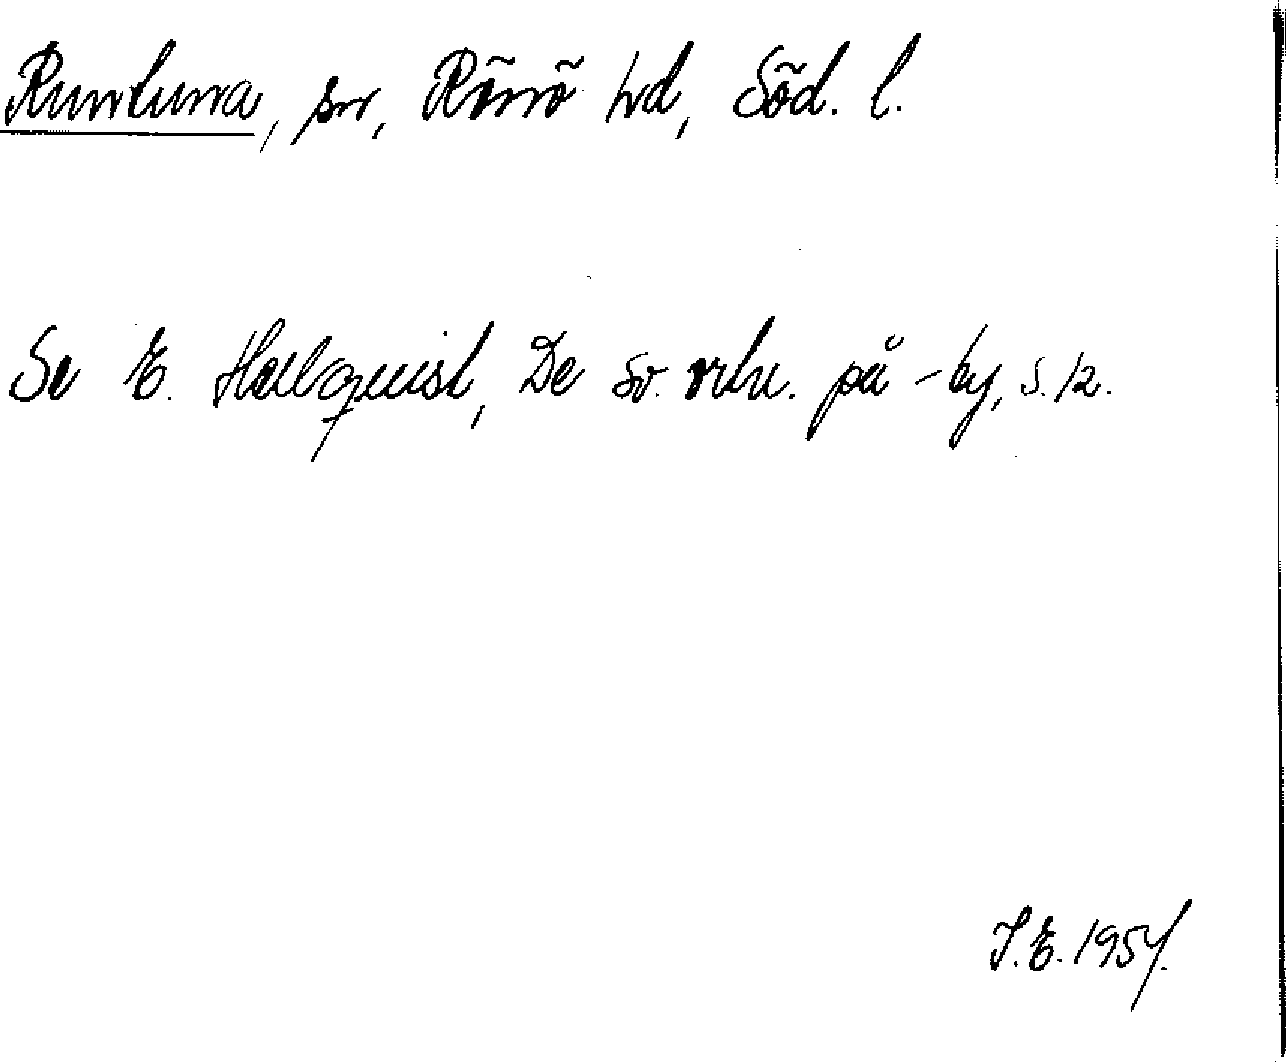 Runtuna, sn, Rönö hd, Söd. l.
Se E. Hellquist, De sv. ortn. på -by, s. 12.
I.E. 1954.